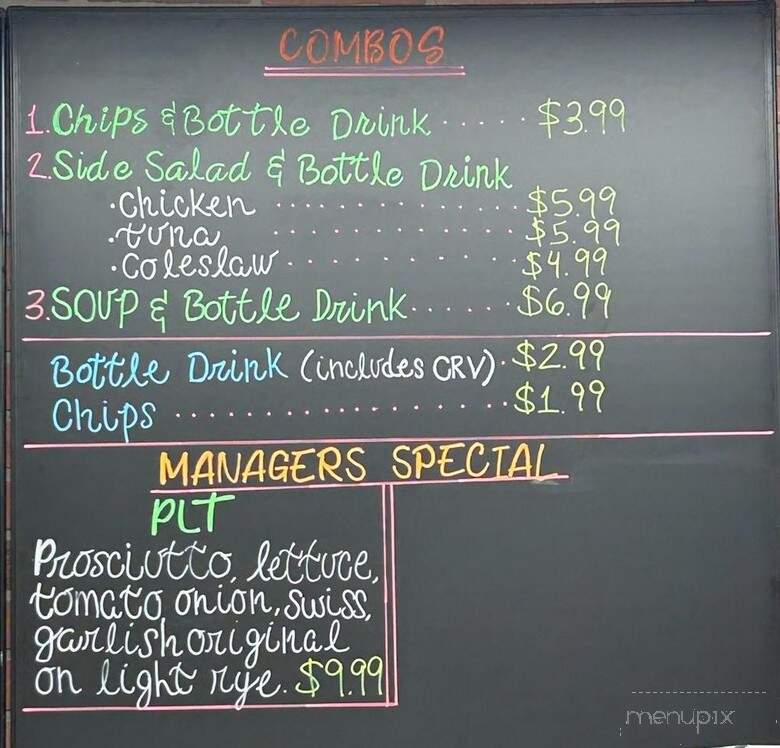 COMBOS
1. Chips & Bottle Drink ..... $3.99
2. Side Salad & Bottle Drink
·Chicken .............. $5.99
·tuna .............. $5.99
·Coleslaw .............. $4.99
3. SOUP & Bottle Drink...... $6.99
Bottle Drink (includes CRV). $2.99
Chips .................. $1.99
MANAGERS SPECIAL
PLT
Prosciutto, lettuce,
tomato onion, swiss,
garlish original
on light rye. $9.99
menupix